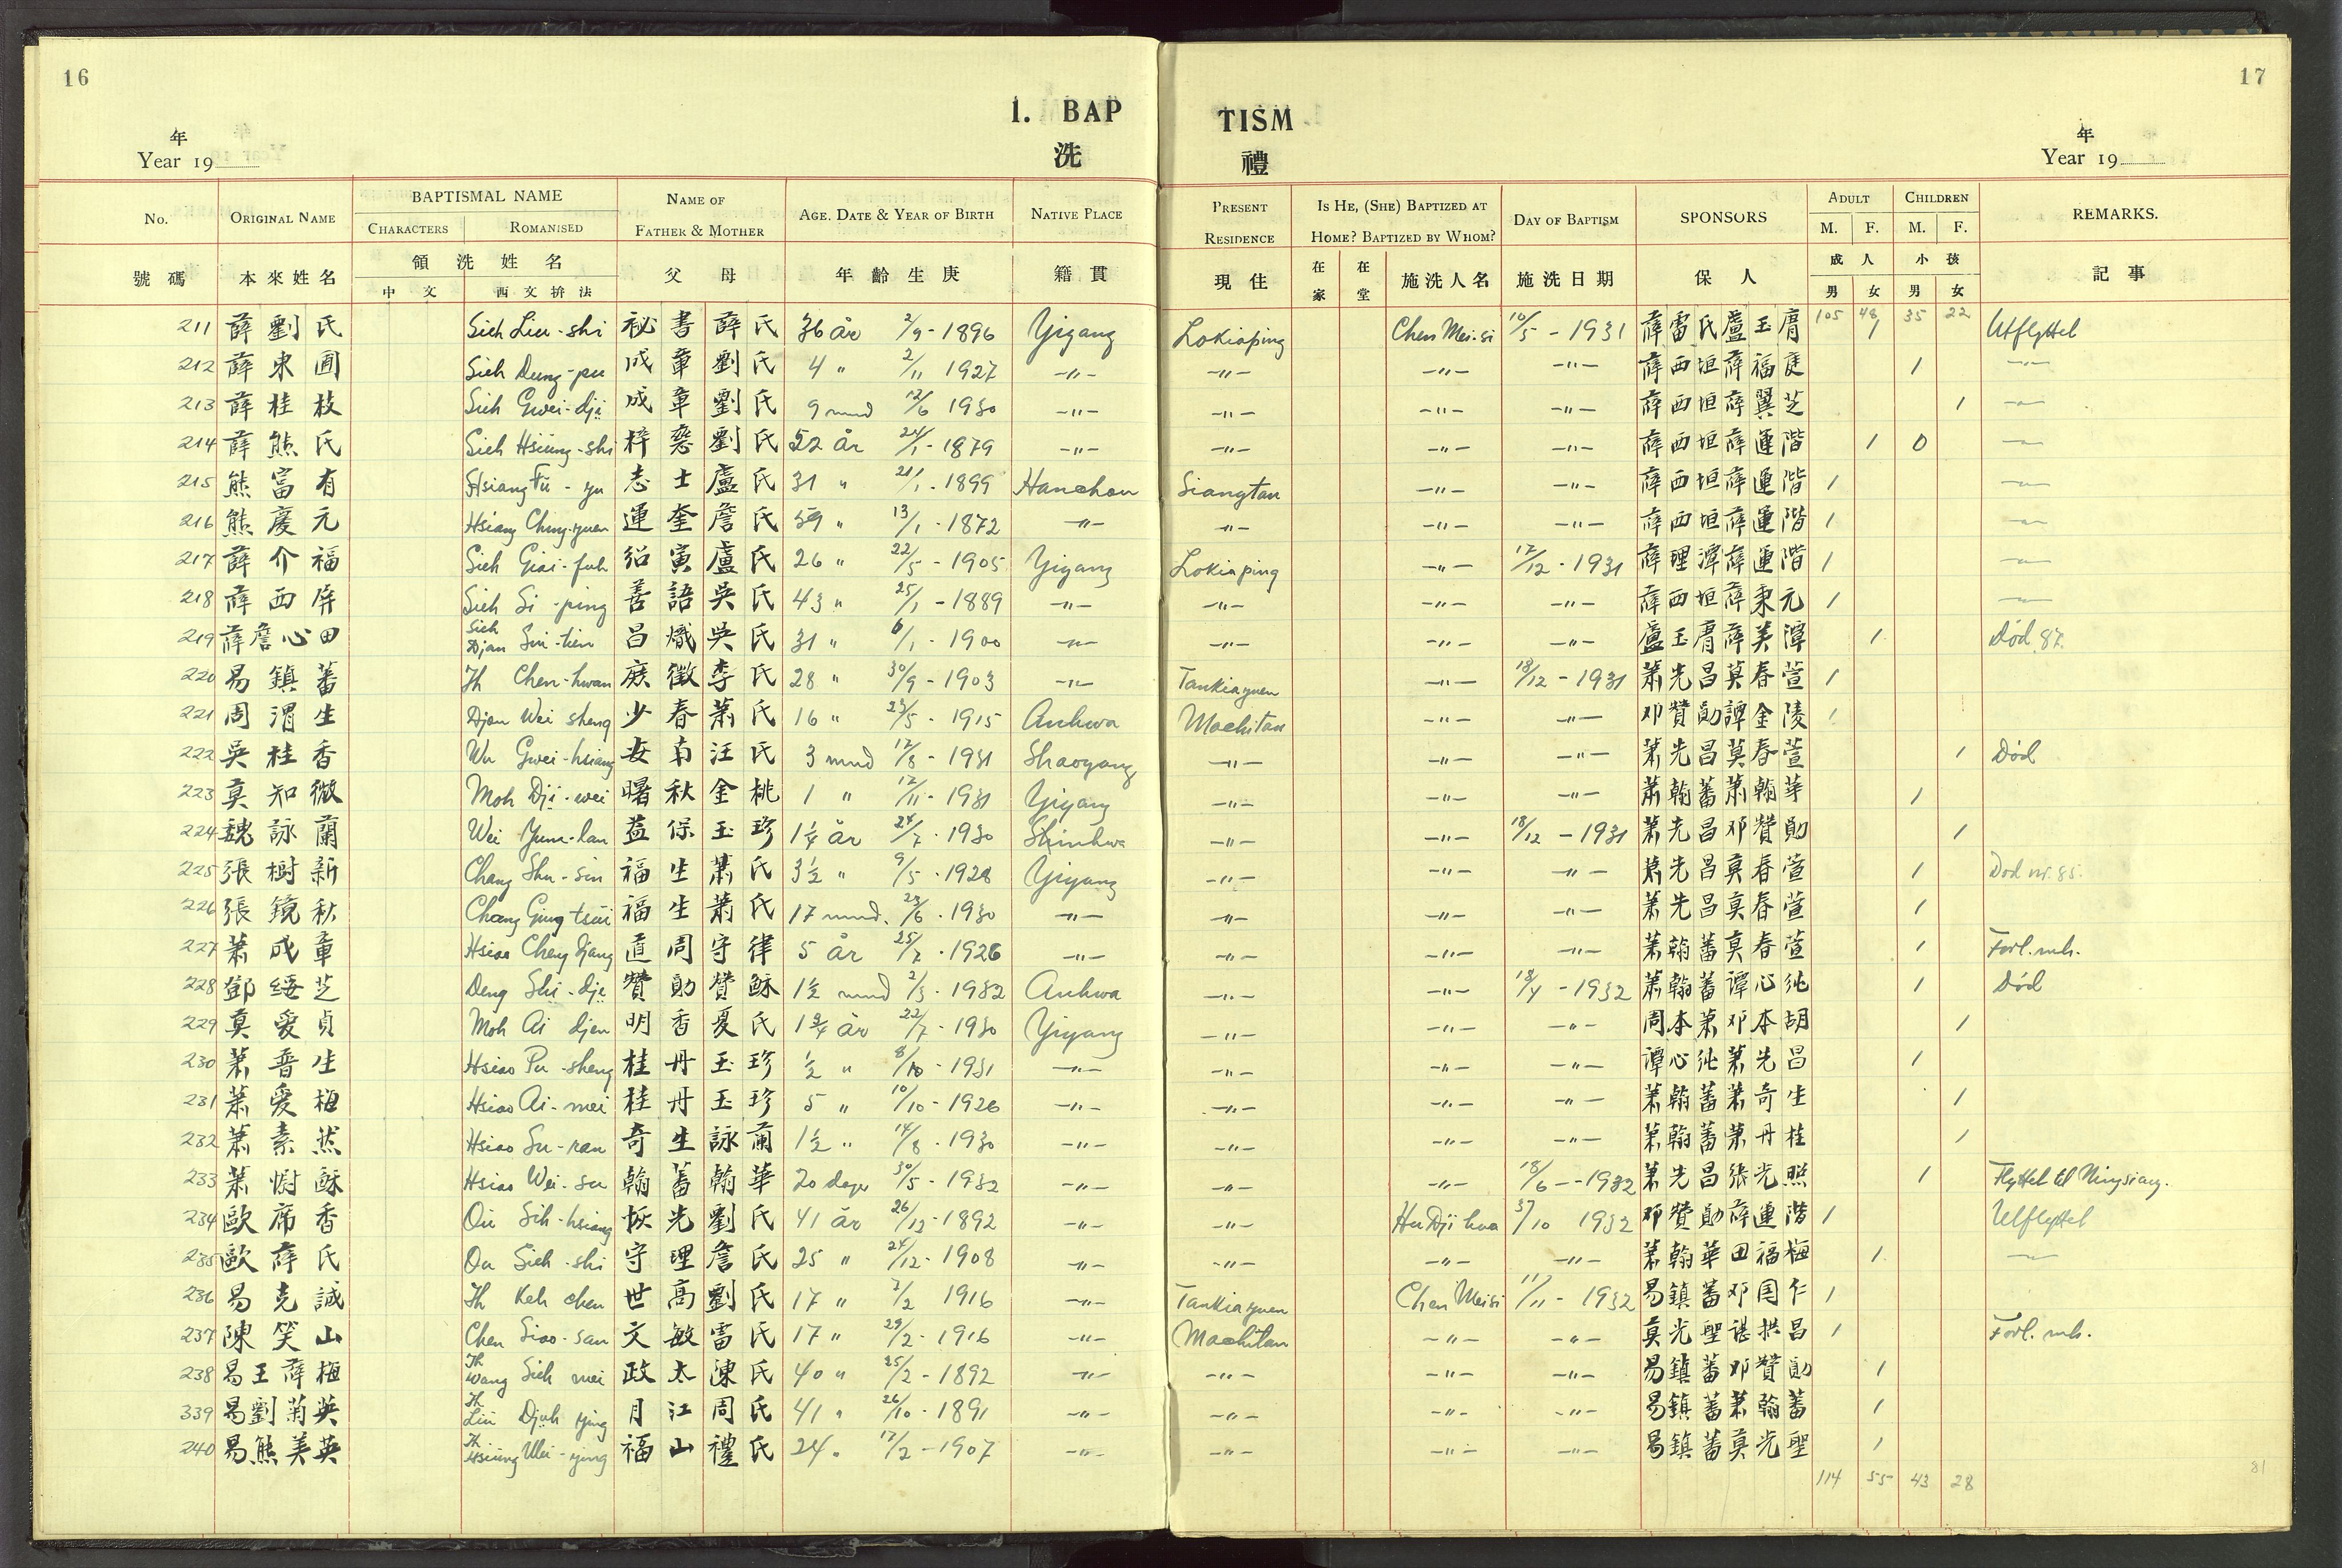 16
17
1. BAP TISM
洗 禮
年
Year 19
年
Year 19
No. ORIGINAL NAME BAPTISMAL NAME CHARACTERS ROMANISED NAME OF FATHER & MOTHER AGE. DATE & YEAR OF BIRTH NATIVE PLACE PRESENT RESIDENCE IS HE, (SHE) BAPTIZED AT HOME? BAPTIZED BY WHOM? DAY OF BAPTISM SPONSORS ADULT M. F. CHILDREN M. F. REMARKS.
號碼 本來姓名 領洗姓名 中文 西文拚法 父母 年齡生庚 籍貫 現住 在家 在堂 施洗人名 施洗日期 保人 成人 男 女 小孩 男 女 記事
105 48 35 22
211 薛劉氏 Sieh Liu-shi 祕書薛氏 36 år 2/9-1896 Yigang Lokiaping Chen Mei-si 10/5-1931 薛雷氏盧玉膺 1 Utflyttet
212 薛東圃 Sieh Dung-pu 成章劉氏 4 " 2/11 1927 -"- -"- -"- -"- 薛西垣薛福庭 1 -"-
213 薛桂枝 Sieh Gwei-dji 成章劉氏 9 mnd 12/6 1930 -"- -"- -"- -"- 薛西垣薛翼芝 1 -"-
214 薛熊氏 Sieh Hsiung-shi 梓劉氏 52 år 24/1-1879 -"- -"- -"- -"- 薛西垣薛運階 1 0 -"-
215 熊富有 Hsiang Fu-yu 志士盧氏 31 " 21/1-1899 Hanchou Siangtan -"- -"- 薛西垣薛運階 1 -"-
216 熊慶元 Hsiang Ching-yuen 運奎詹氏 59 " 13/1-1872 -"- -"- -"- -"- 薛西垣薛運階 1 -"-
217 薛介福 Sieh Giai-fuh 紹寅盧氏 26 " 22/5-1905 Yiyang Lokiaping -"- 12/12-1931 薛理潭薛運階 1 -"-
218 薛西屏 Sieh Si-ping 善語吳氏 43 " 25/1-1889 -"- -"- -"- -"- 薛西垣薛東元 1 -"-
219 薛詹心田 Sieh Djan Sin-tien 昌熾吳氏 31 " 6/1-1900 -"- -"- -"- -"- 盧玉膺薛美潭 1 Död 87.
220 易鎮蕃 Ih Chen-hwan 庶徵李氏 28 " 30/9-1903 -"- Tankiayuen -"- 18/12-1931 蕭先昌莫春萱 1
221 周渭生 Djou Wei sheng 少春蕭氏 16 " 23/5-1915 Anhwa Machitan -"- -"- 邓贊勛譚金陵 1
222 吳桂香 Wu Gwei-hsiang 安南汪氏 3 mnd 12/8-1931 Shaoyang -"- -"- -"- 蕭先昌莫春萱 1 Död
223 莫知微 Moh Dji-wei 曙秋金桃 1 " 12/11-1931 Yiyang -"- -"- -"- 蕭翰蕃蕭翰華 1
224 魏詠蘭 Wei Yuin-lan 益保玉珍 1¼ år 24/7-1930 Shinhwa -"- -"- 18/12-1931 蕭先昌邓贊勛 1
225 張樹新 Chang Shu-sin 福生蕭氏 3½ " 9/5-1928 Yiyang -"- -"- -"- 蕭先昌莫春萱 1 Död nr. 85.
226 張鏡秋 Chang Ging tsiu 福生蕭氏 17 mnd. 23/6-1930 -"- -"- -"- -"- 蕭先昌莫春萱 1
227 蕭成章 Hsiao Cheng djang 道周守律 5 år 25/7-1926 -"- -"- -"- -"- 蕭翰蕃莫春萱 1 Forl. mh.
228 鄧綏芝 Deng Shi-dji 贊勛贊穌 1½ mnd 2/3-1932 Anhwa -"- -"- 18/4-1932 蕭翰蕃譚心純 1 Död
229 莫愛貞 Moh Ai djen 明香夏氏 1¾ år 22/7-1930 Yiyang -"- -"- -"- 周本蕭邓本胡 1
230 蕭普生 Hsiao Pu-sheng 桂丹玉珍 ½ " 8/10-1931 -"- -"- -"- -"- 譚心純蕭先昌 1
231 蕭愛梅 Hsiao Ai-mei 桂丹玉珍 5 " 10/10-1926 -"- -"- -"- -"- 蕭翰蕃蕭奇生 1
232 蕭素然 Hsiao Su-ran 奇生詠蘭 1½ " 14/8-1930 -"- -"- -"- -"- 蕭翰蕃蕭丹桂 1
233 蕭慰穌 Hsiao Wei-su 翰蕃翰華 20 dage 30/5-1932 -"- -"- -"- 18/6-1932 蕭先昌張光照 1 Flyttet til Ningsiang.
234 歐席香 Ou Sih-hsiang 恢先劉氏 41 år 26/12-1892 -"- -"- Hu Dji hwa 31/10 1932 邓贊勛薛運階 1 Utflyttet
235 歐薛氏 Ou Sieh-shi 守理詹氏 25 " 24/12-1908 -"- -"- -"- -"- 蕭翰華田福梅 1 -"-
236 易克誠 Ih Keh chen 世高劉氏 17 " 7/2 1916 -"- Tankiayuen Chen Meisi 11/11-1932 易鎮蕃邓国仁 1
237 陳笑山 Chen Siao-san 文敏雷氏 17 " 29/2-1916 -"- Machitan -"- -"- 莫光聖諶拱昌 1 Forl. mh.
238 易王薛梅 Ih Wang Sieh mei 政太陳氏 40 " 25/2-1892 -"- -"- -"- -"- 易鎮蕃邓贊勛 1
339 易劉菊英 Ih Liu Djuh ying 月江周氏 41 " 26/10-1891 -"- -"- -"- -"- 易鎮蕃蕭翰蕃 1
240 易熊美英 Ih Hsiung Mei-ying 福山禮氏 24 " 12/2-1907 -"- -"- -"- -"- 易鎮蕃莫光聖 1
114 55 43 28
81